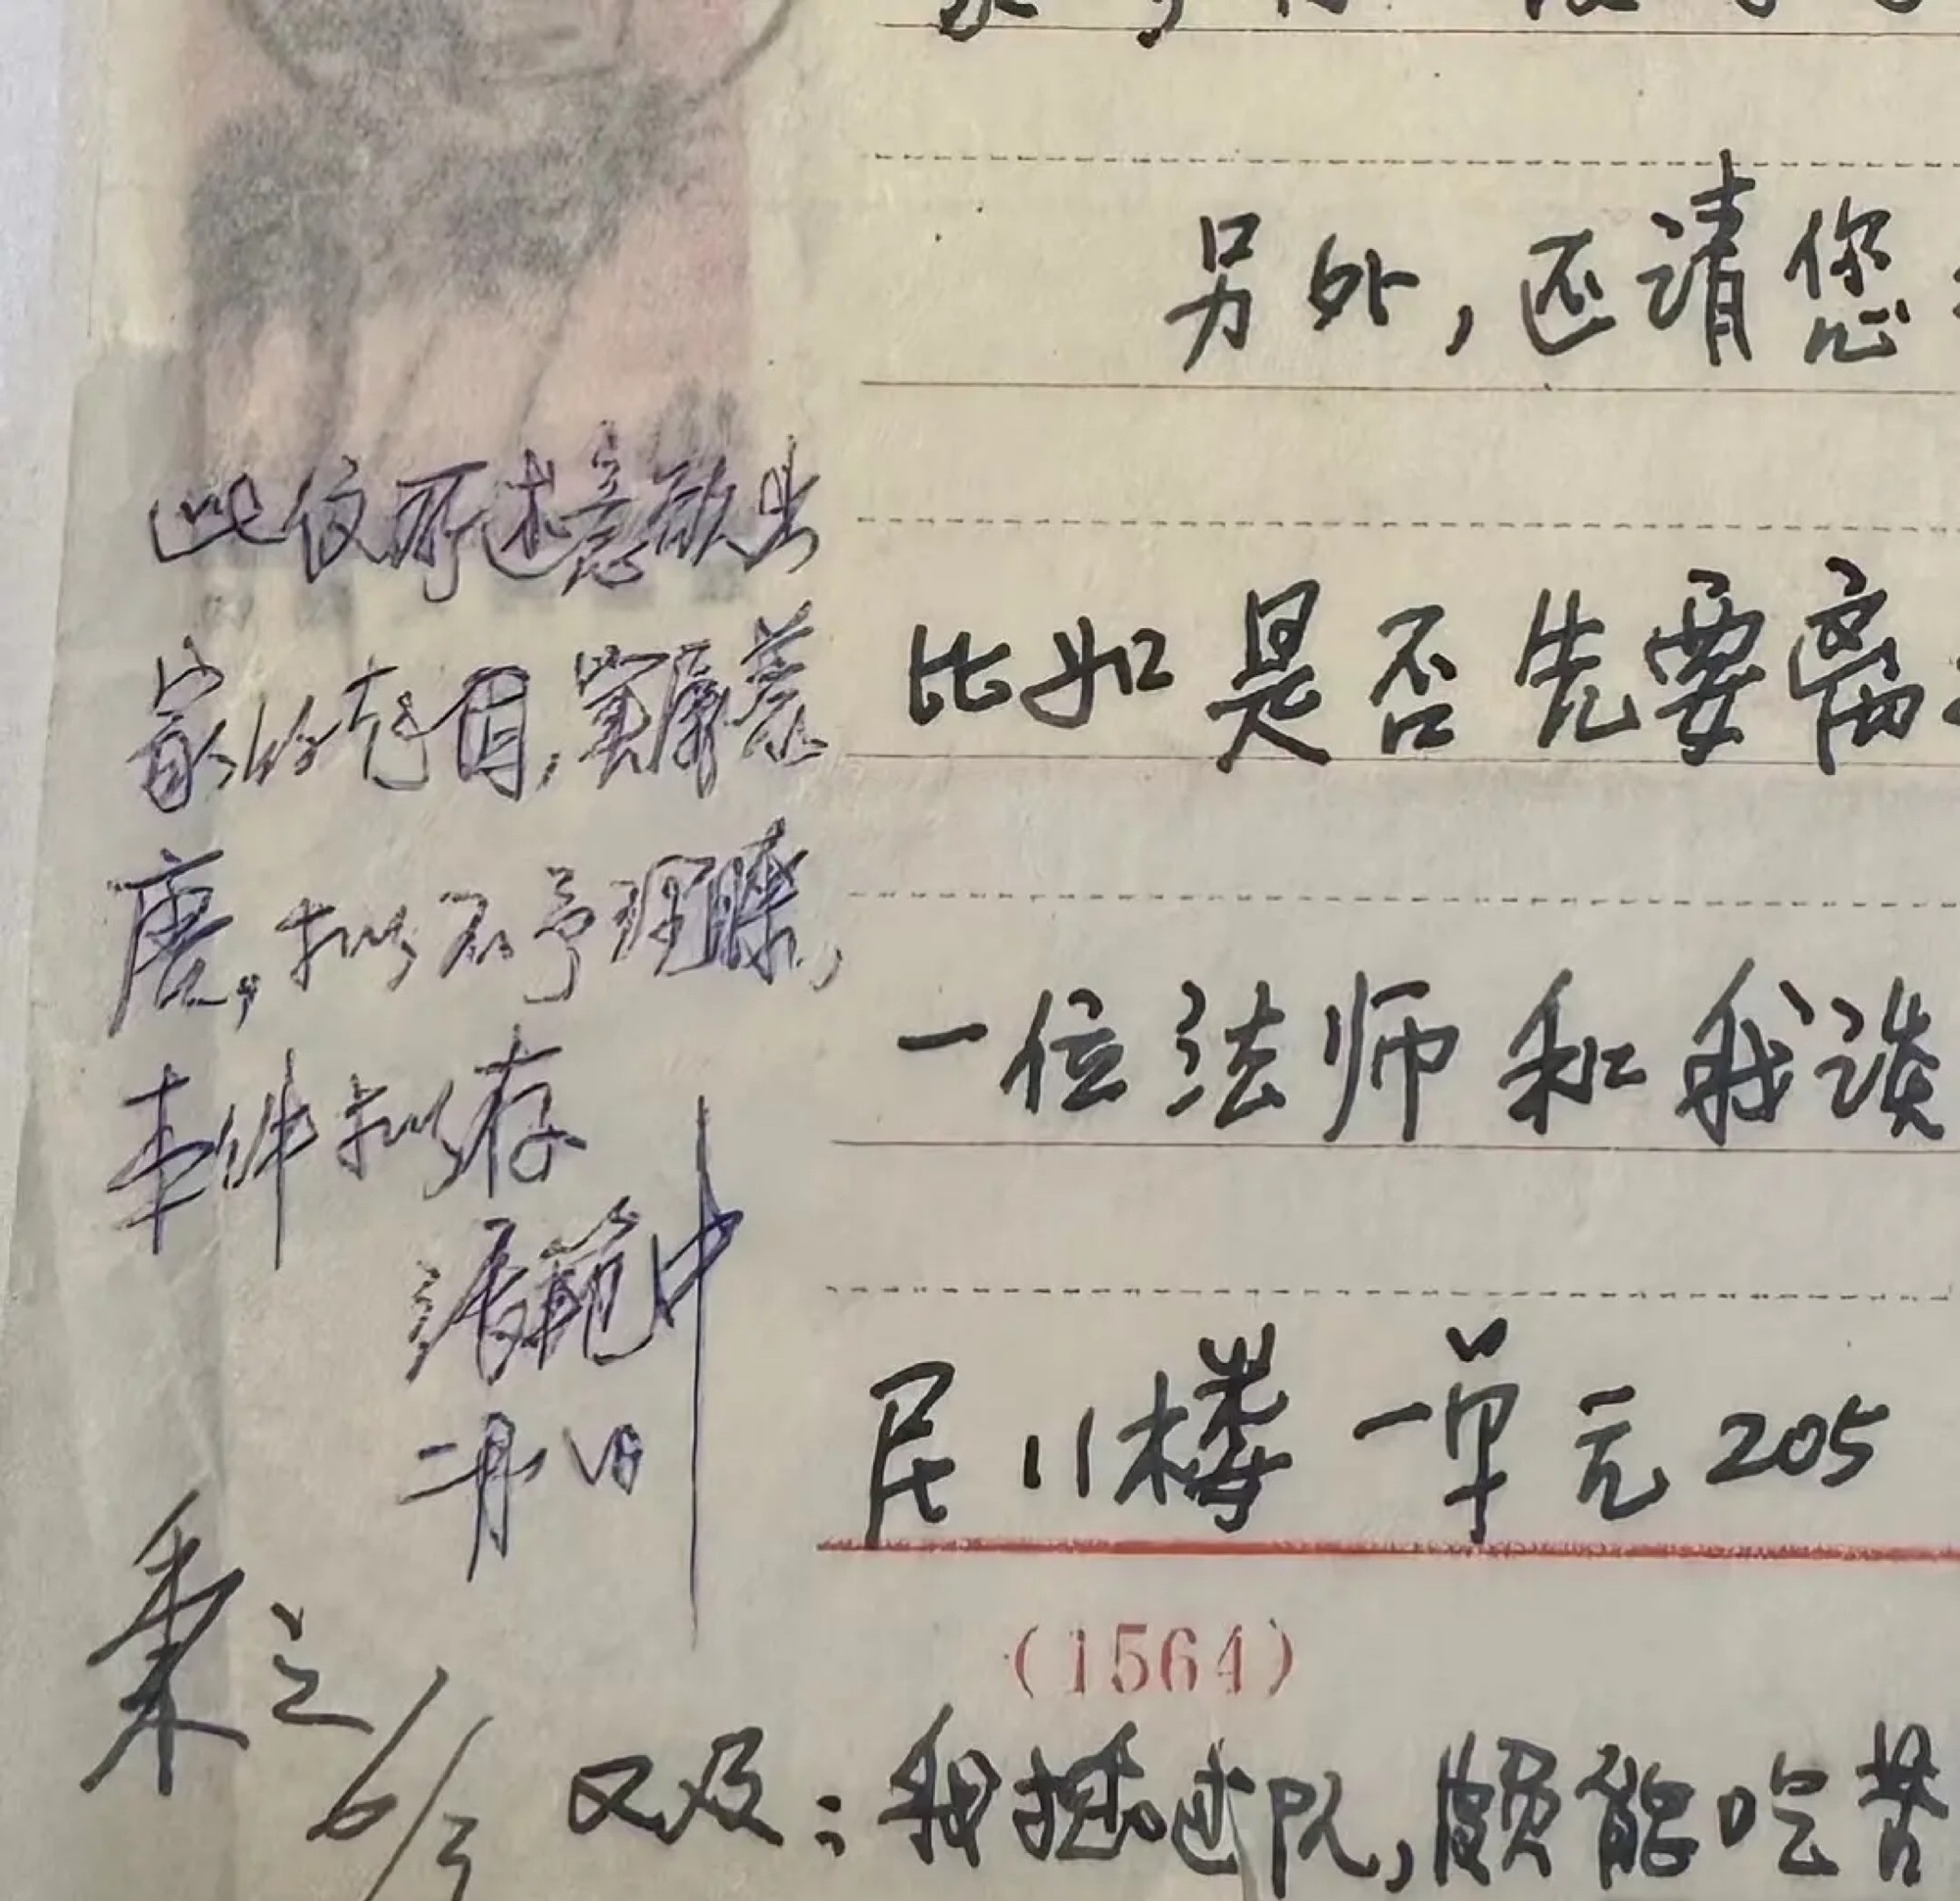 另外，还请您
比如是否先要离
一位法师和我谈
民11楼一单元205
(1564)
又及：我插过队，颇能吃苦
此位所述意欲出
家的克因，实属荒
唐。拟不予理睬，
本件拟存
张范中
二月八日
秉之
6/3